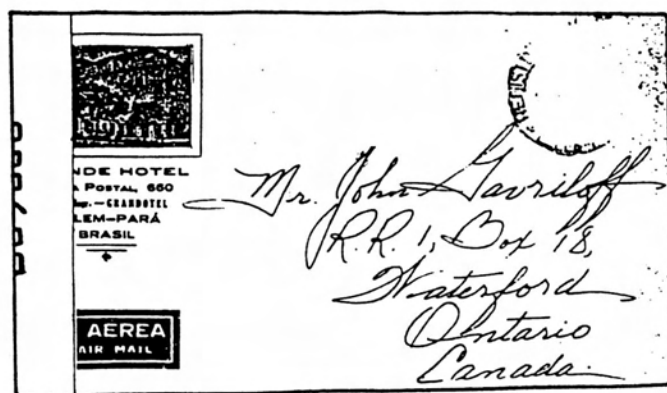 NDE HOTEL
A POSTAL, 660
GRANDOTEL
LEM-PARÁ
BRASIL
AEREA
AIR MAIL
Mr. John Gavriloff
R.R. 1, Box 18,
Waterford
Ontario
Canada.